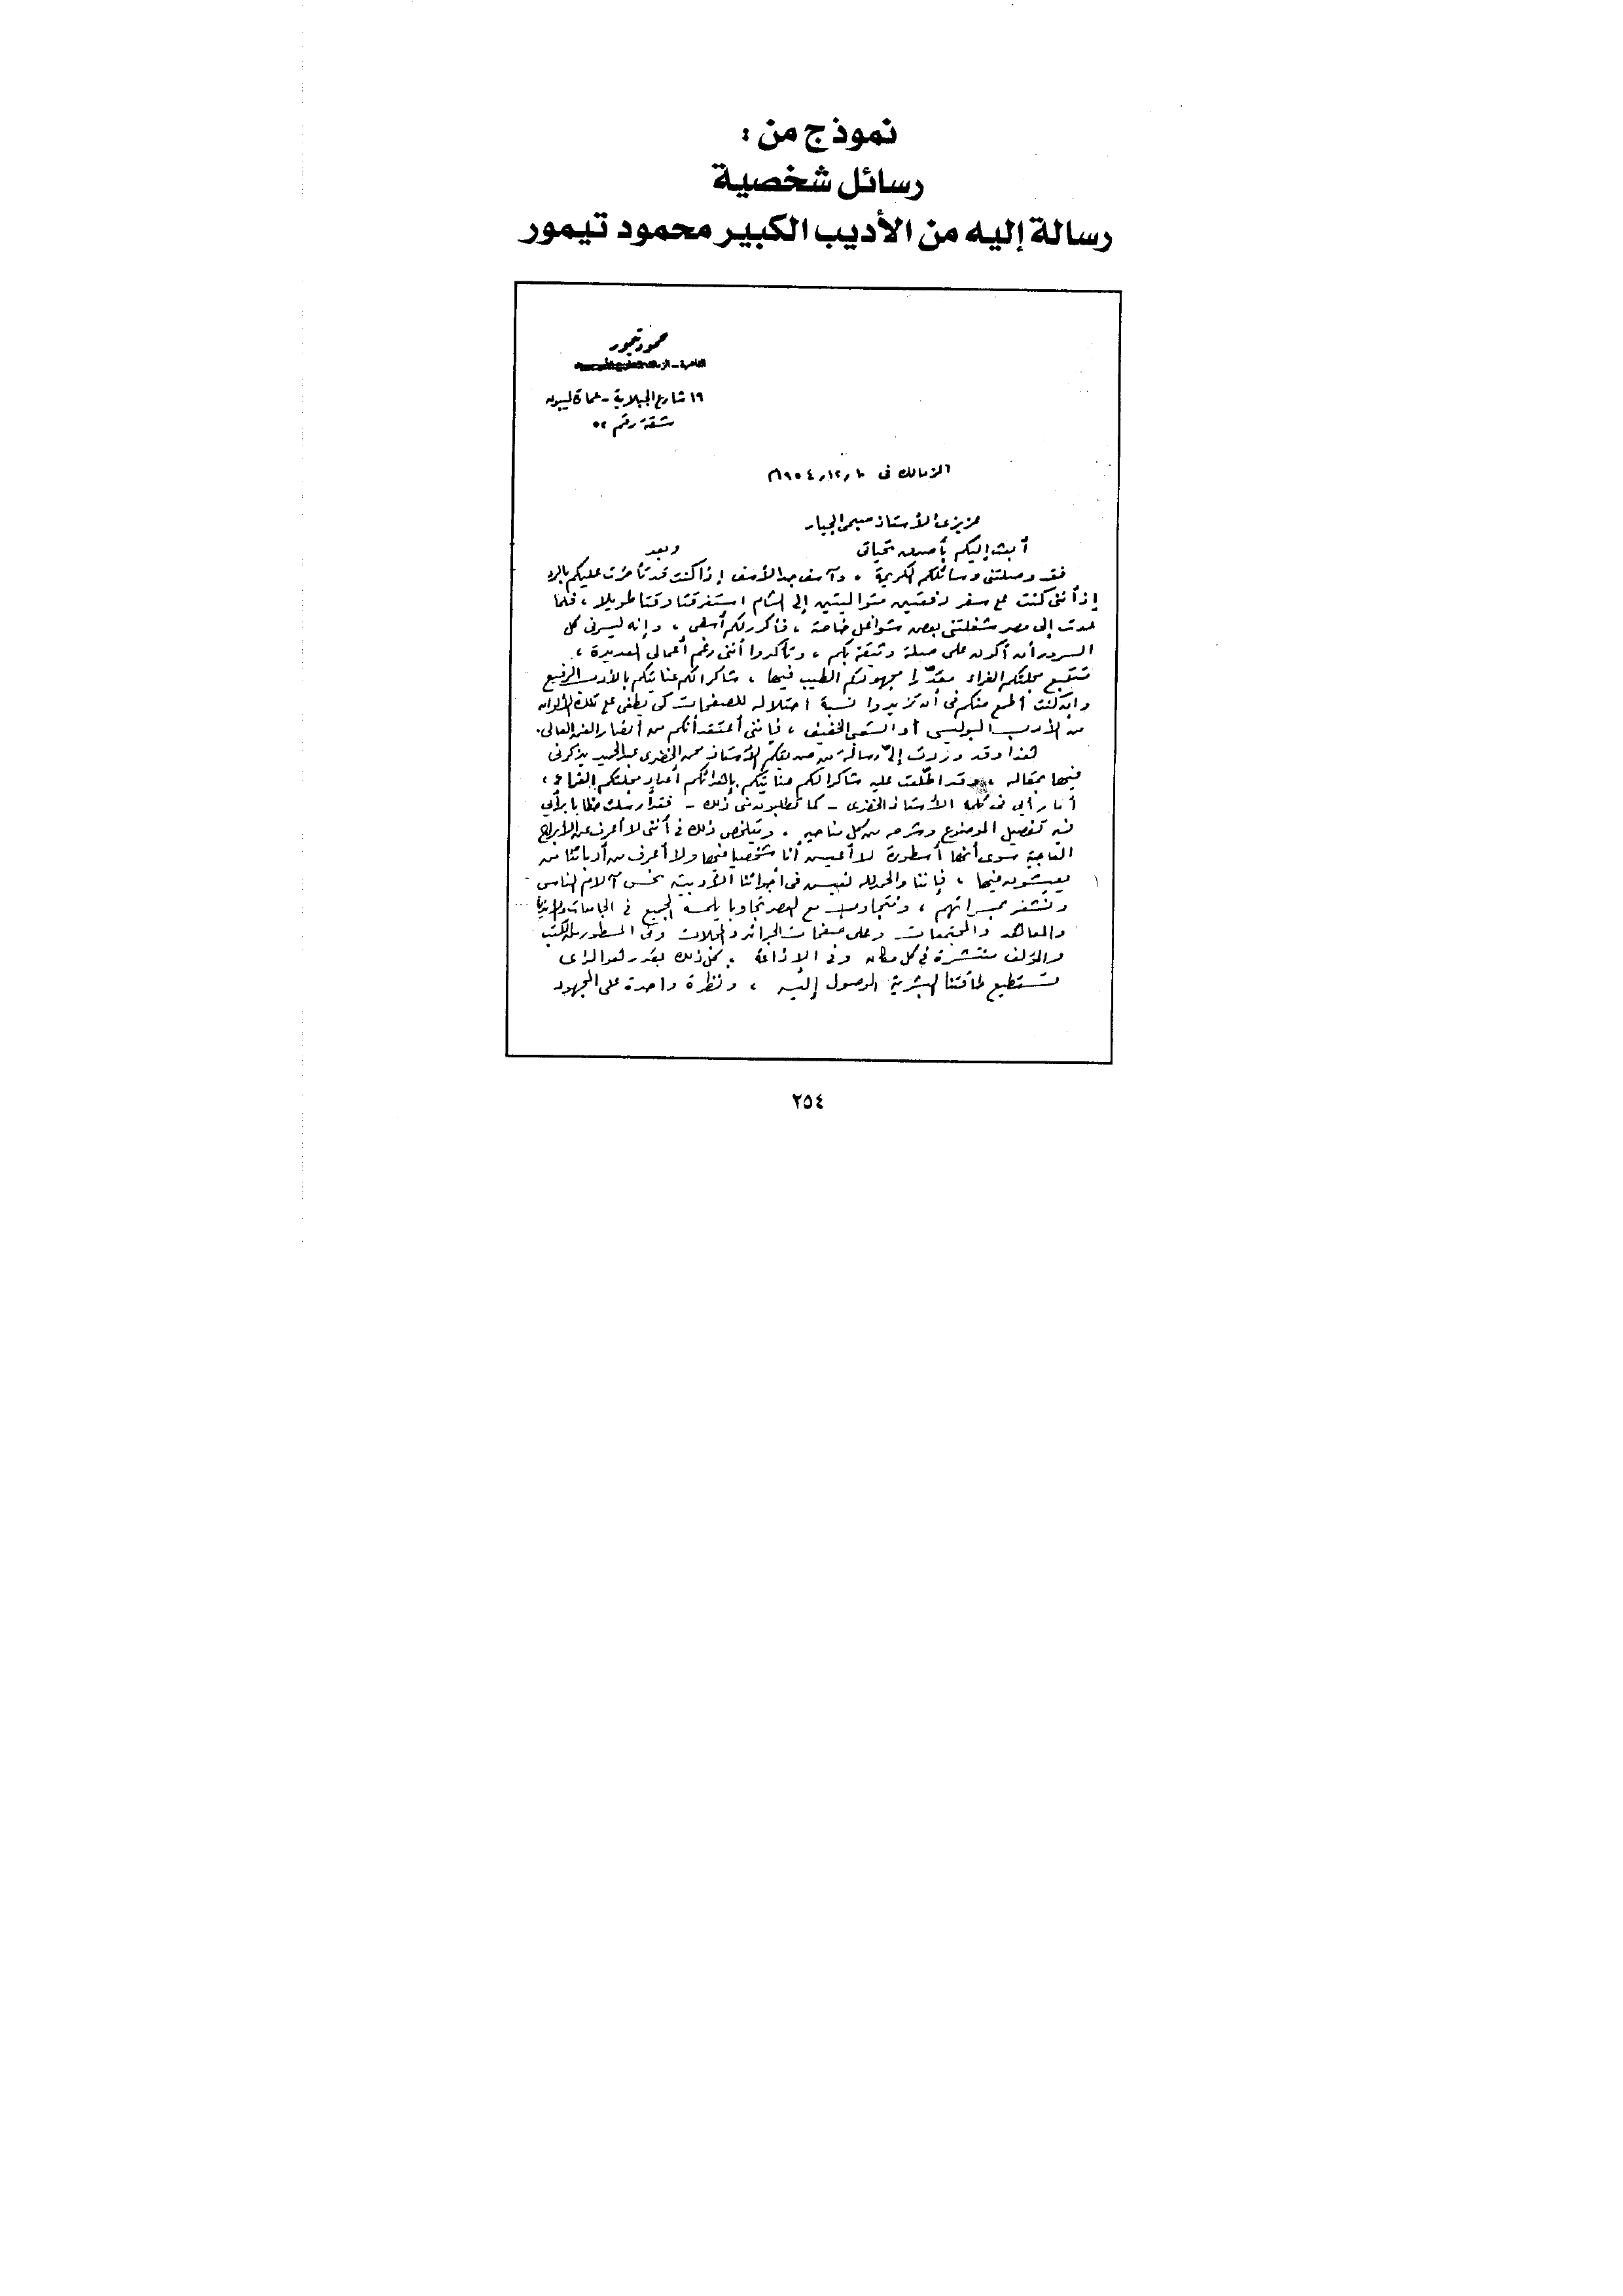 نموذج من :
رسائل شخصية
رسالة إليه من الأديب الكبير محمود تيمور
محمود تيمور
القاهرة -
١٩ شارع الجبلاية - عمارة ليبون
شقة رقم ٥٢
الزمالك فى ١٠ر١٢ر١٩٥٤م
عزيزى الأستاذ صبحى الجيار
أبعث إليكم بأصدق تحياتى وبعد
فقد وصلتنى رسائلكم الكريمة ، وآسف جد الأسف إذا كنت قد تأخرت عليكم بالرد
إذ أننى كنت على سفر دفعتين متواليتين إلى الشام استغرقتا وقتا طويلا ، فلما
عدت إلى مصر شغلتنى بعض شواغل خاصة ، فأكرر لكم أسفى ، وإنه ليسرنى كل
السرور أن أكون على صلة وثيقة بكم ، وتأكدوا أننى رغم أعمالى العديدة ،
تتبع مجلتكم الغراء مقدّرا مجهودكم الطيب فيها ، شاكرا لكم عنايتكم بالأدب الرفيع
وإن كنت أطمع منكم فى أن تزيدوا نسبة احتلاله للصفحات كى يطغى على تلك الألوان
من الأدب البوليسى أو الشعبى الخفيف ، فإننى أعتقد أنكم من أنصار الفن العالى .
هذا وقد وردت إلىّ رسالة من صديقكم الأستاذ محمد الخضرى عبد الحميد يذكرنى
فيها بمقاله ، وقد اطّلعت عليه شاكرا لكم عنايتكم بإهدائكم أعداد مجلتكم الغراء ،
أما رأيى فى كلمة الأستاذ الخضرى - كما تطلبون منى ذلك - فقد أرسلت خطابا برأيى
فيه تفصيل الموضوع وشرحه من كل مناحيه ، ويتلخص ذلك فى أننى لا أعرف عن الأبراج
العاجية سوى أنها أسطورة لا أعيش أنا شخصيا فيها ولا أعرف من أدبائنا من
يعيشون فيها ، فإننا والحمد لله نعيش فى أجوائنا الأدبية نحس آلام الناس
ونشعر بمسراتهم ، ونتجاوب مع العصر تجاوبا يلمسه الجميع فى الجامعات والأندية
والمعاهد والمجتمعات وعلى صفحات الجرائد والمجلات وفى السطور الكتب
والمؤلف منتشرة فى كل مكان وفى الإذاعة . كل ذلك بقدر هو الذى
تستطيع طاقتنا البشرية الوصول إليه ، ونظرة واحدة على المجهود
٢٥٤